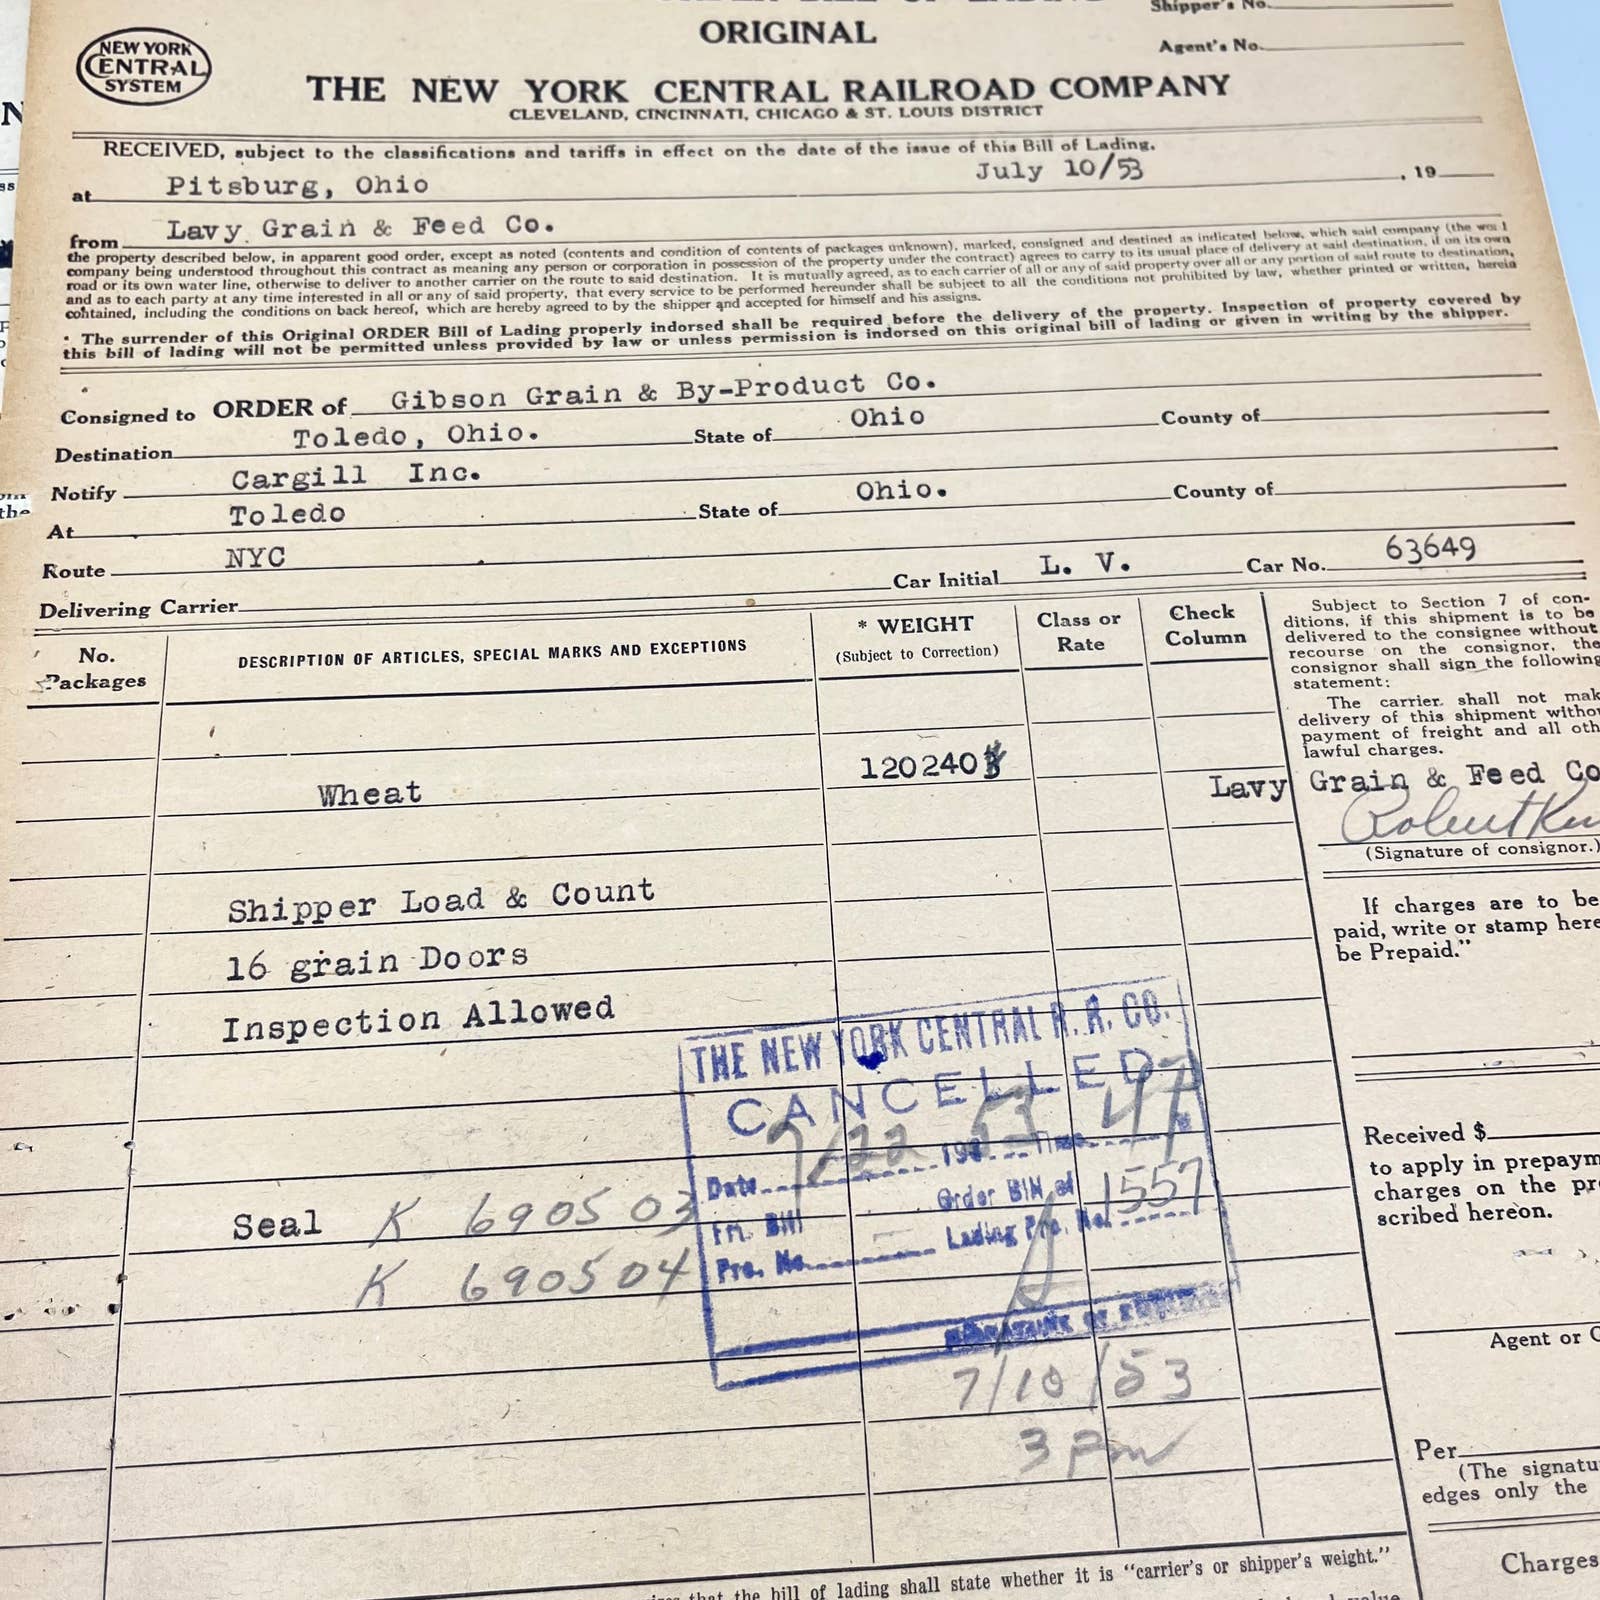 ORIGINAL
Shipper's No.
Agent's No.
NEW YORK
CENTRAL
SYSTEM
THE NEW YORK CENTRAL RAILROAD COMPANY
CLEVELAND, CINCINNATI, CHICAGO & ST. LOUIS DISTRICT
RECEIVED, subject to the classifications and tariffs in effect on the date of the issue of this Bill of Lading.
at Pitsburg, Ohio July 10/53 , 19
from Lavy Grain & Feed Co.
the property described below, in apparent good order, except as noted (contents and condition of contents of packages unknown), marked, consigned and destined as indicated below, which said company (the
company being understood throughout this contract as meaning any person or corporation in possession of the property under the contract) agrees to carry to its usual place of delivery at said destination, if on its own
road or its own water line, otherwise to deliver to another carrier on the route to said destination. It is mutually agreed, as to each carrier of all or any of said property over all or any portion of said route to destination,
and as to each party at any time interested in all or any of said property, that every service to be performed hereunder shall be subject to all the conditions not prohibited by law, whether printed or written, herein
contained, including the conditions on back hereof, which are hereby agreed to by the shipper and accepted for himself and his assigns.
The surrender of this Original ORDER Bill of Lading properly indorsed shall be required before the delivery of the property. Inspection of property covered by
this bill of lading will not be permitted unless provided by law or unless permission is indorsed on this original bill of lading or given in writing by the shipper.
Consigned to ORDER of Gibson Grain & By-Product Co.
Destination Toledo, Ohio. State of Ohio County of
Notify Cargill Inc.
At Toledo State of Ohio. County of
Route NYC
Delivering Carrier Car Initial L. V. Car No. 63649
No. Packages
DESCRIPTION OF ARTICLES, SPECIAL MARKS AND EXCEPTIONS
* WEIGHT
(Subject to Correction)
Class or Rate
Check Column
Subject to Section 7 of con-
ditions, if this shipment is to be
delivered to the consignee without
recourse on the consignor, the
consignor shall sign the following
statement:
The carrier shall not mak
delivery of this shipment witho
payment of freight and all oth
lawful charges.
Wheat 120240
Lavy Grain & Feed Co
Robert
(Signature of consignor.)
Shipper Load & Count
16 grain Doors
Inspection Allowed
If charges are to be
paid, write or stamp here
be Prepaid."
THE NEW YORK CENTRAL R. R. CO.
CANCELLED
Date 7/22 195 53 Time
Frt. Bill Order Bill of
Pro. No. Lading Pro. No. 1557
SIGNATURE OF
Seal K 690503
K 690504
7/10/53
3 Pm
Received $
to apply in prepaym
charges on the pr
scribed hereon.
Agent or
Per
(The signatu
edges only the
Charges
that the bill of lading shall state whether it is "carrier's or shipper's weight."